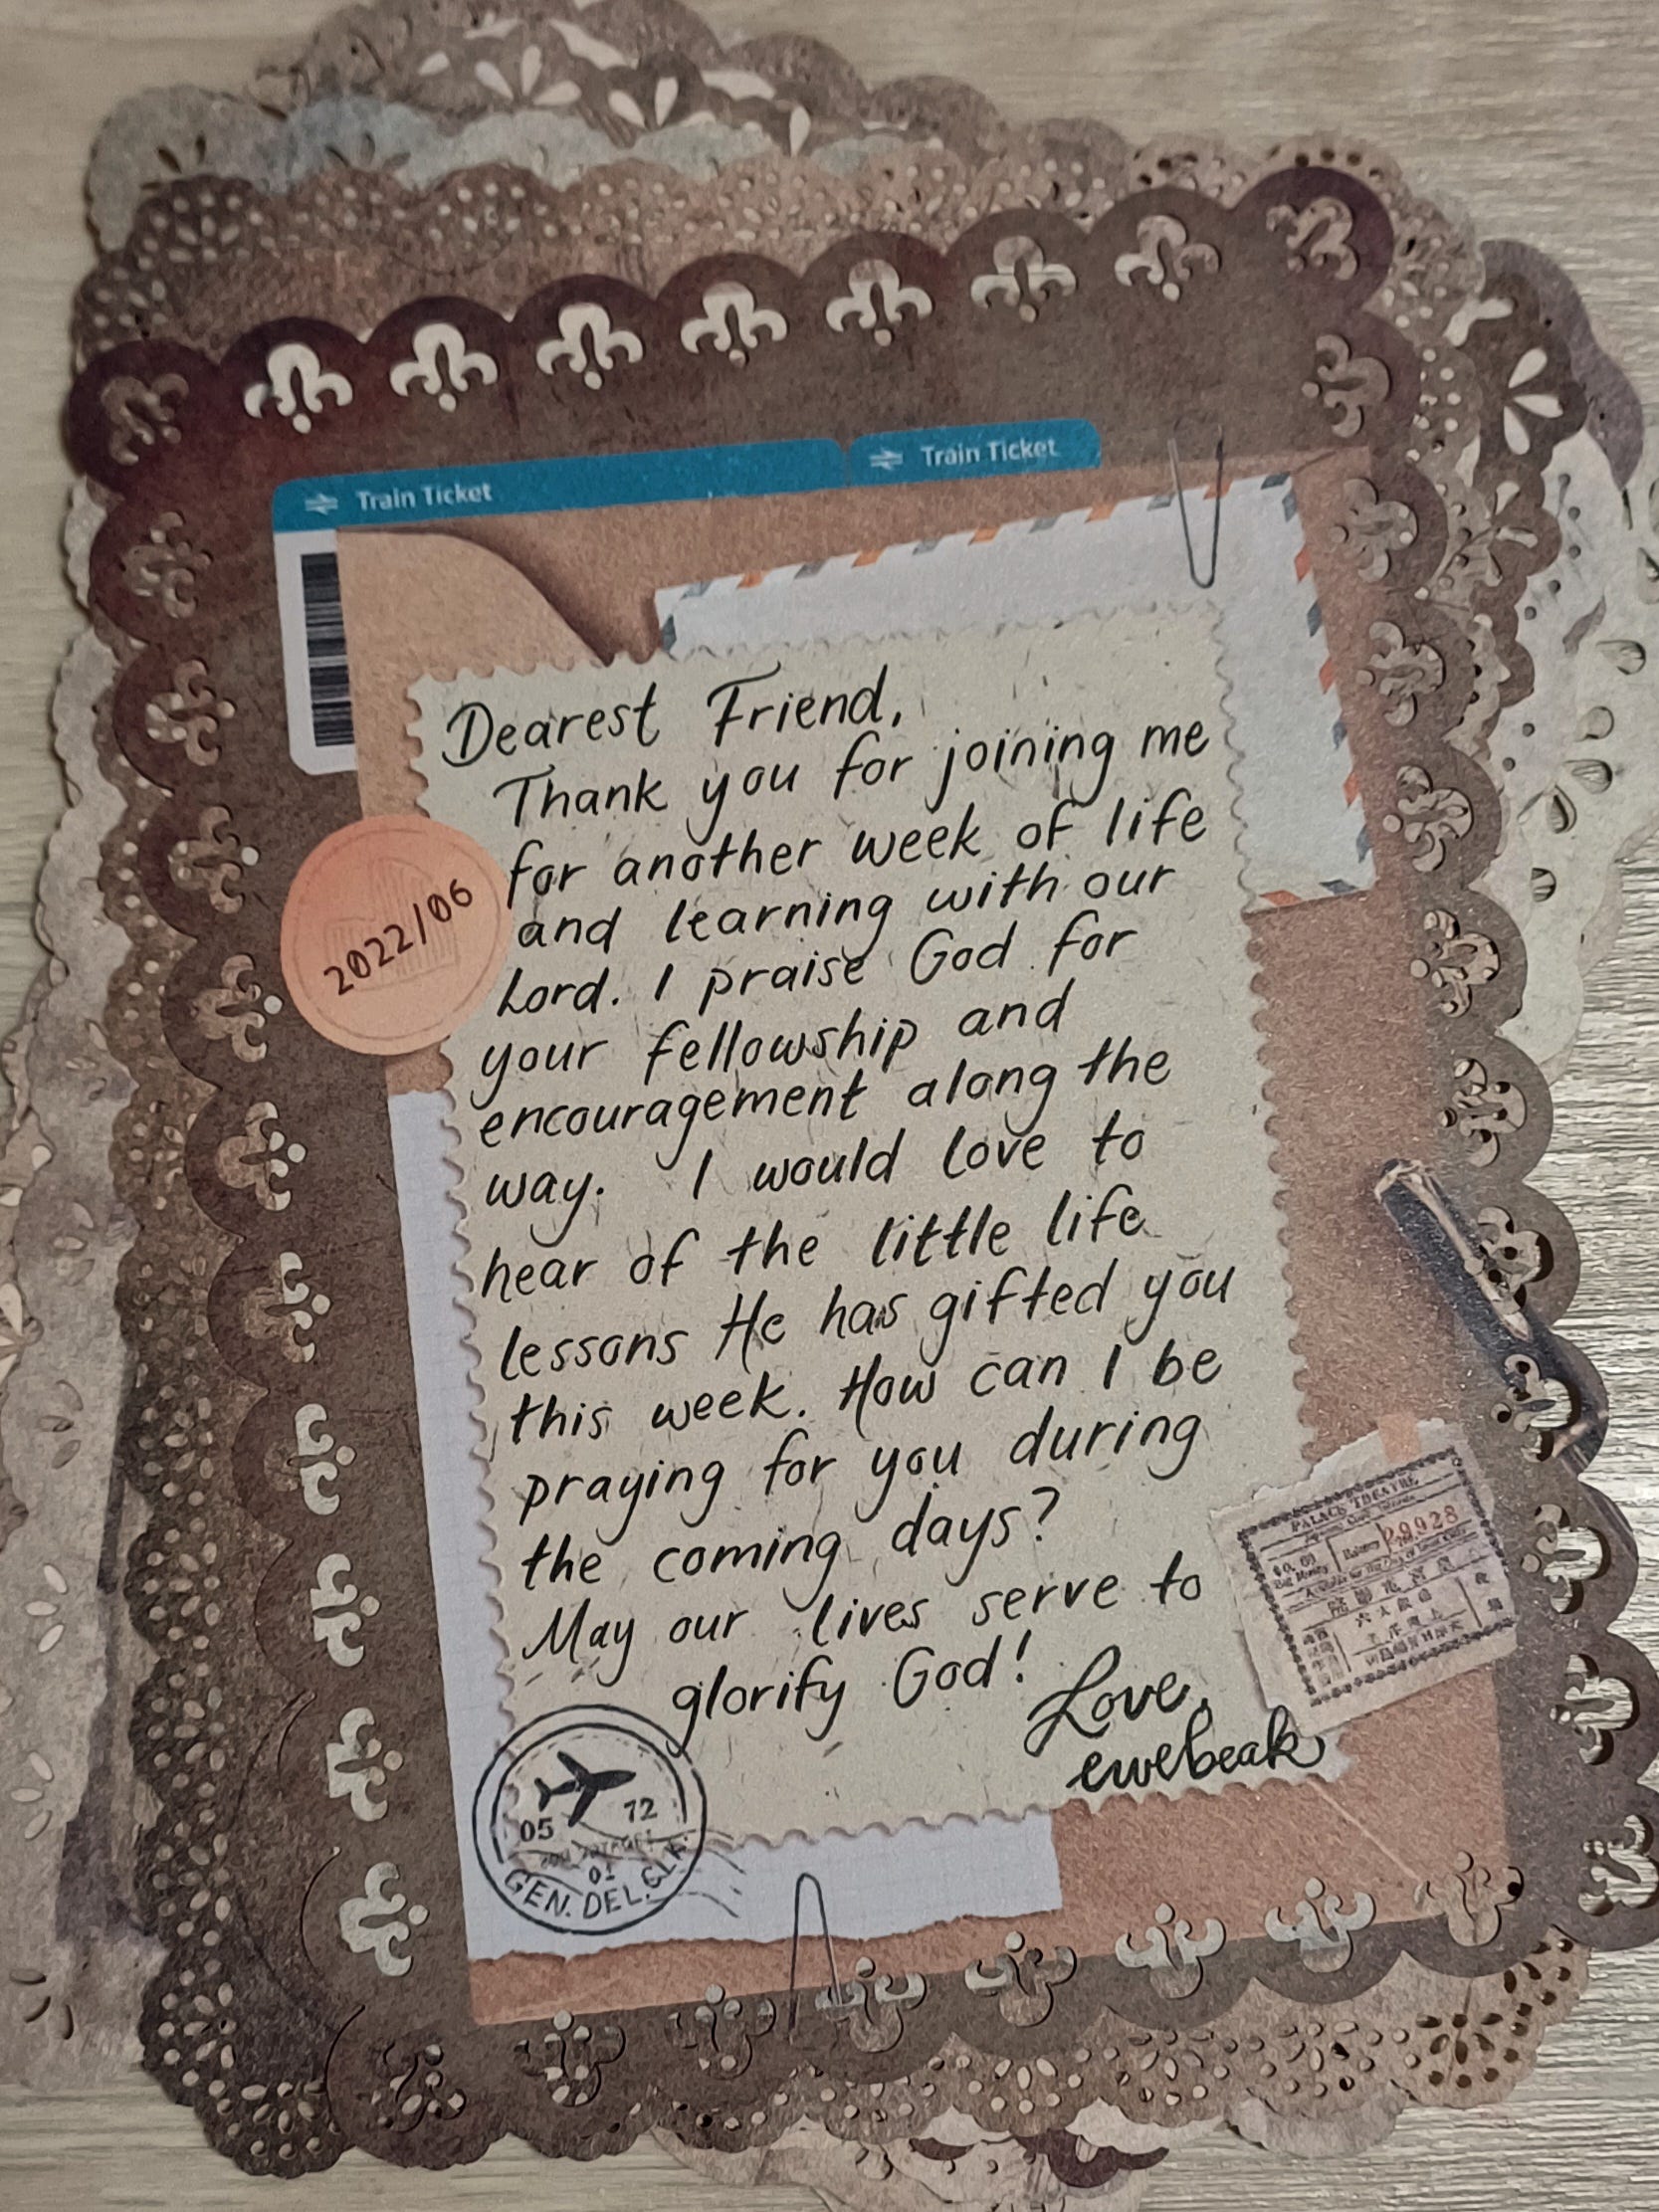 Train Ticket
Train Ticket
Dearest Friend,
Thank you for joining me
for another week of life
and learning with our
Lord. I praise God for
your fellowship and
encouragement along the
way. I would love to
hear of the little life
lessons He has gifted you
this week. How can I be
praying for you during
the coming days?
May our lives serve to
glorify God!
Love,
ewebeak
2022/06
PALACE THEATRE
05 72
01
GEN. DEL. CLK.